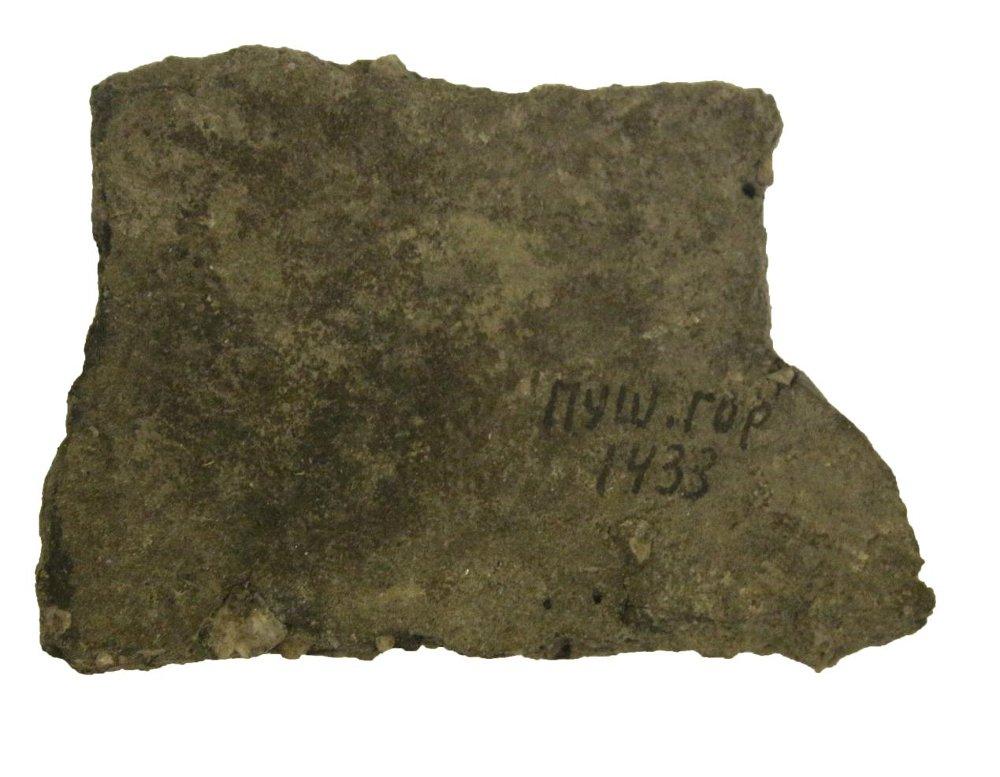 ПУШ.ГОР
1433